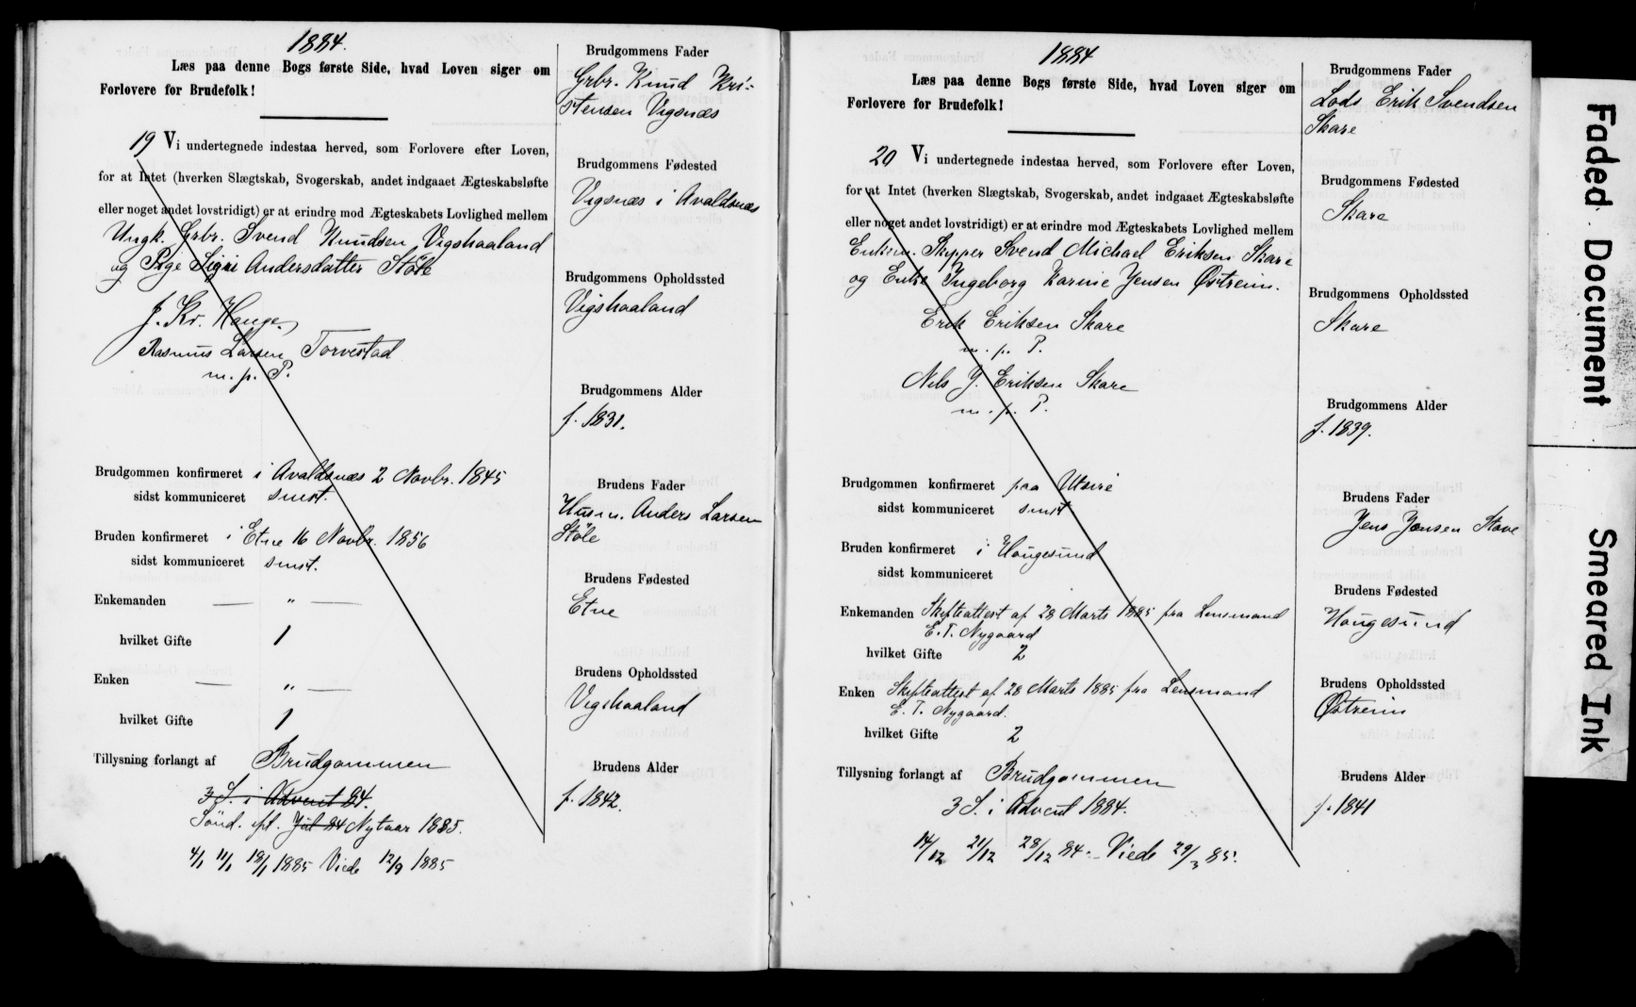 1884.
Læs paa denne Bogs første Side, hvad Loven siger om
Forlovere for Brudefolk!
19 Vi undertegnede indestaa herved, som Forlovere efter Loven,
for at Intet (hverken Slægtskab, Svogerskab, andet indgaaet Ægteskabsløfte
eller noget andet lovstridigt) er at erindre mod Ægteskabets Lovlighed mellem
Ungk. Grbr. Svend Knudsen Vigshaaland
og Pige Sigri Andersdatter Støle
J. Kr. Hauge
Rasmus Larsen Torvestad
m. p. P.
Brudgommen konfirmeret i Avaldsnæs 2 Novbr. 1845
sidst kommuniceret smst.
Bruden konfirmeret i Etne 16 Novbr. 1856
sidst kommuniceret smst.
Enkemanden — „ —
hvilket Gifte 1
Enken — „ —
hvilket Gifte 1
Tillysning forlangt af Brudgommen
3 S. i Advent 84.
Sønd. eft. Jul 84 Nytaar 1885.
4/1 11/1 18/1 1885 Viede 12/9 1885
Brudgommens Fader
Grbr. Knud Kri-
stensen Vigsnæs
Brudgommens Fødested
Vigsnæs i Avaldsnæs
Brudgommens Opholdssted
Vigshaaland
Brudgommens Alder
f. 1831.
Brudens Fader
Husm. Anders Larsen
Støle
Brudens Fødested
Etne
Brudens Opholdssted
Vigshaaland
Brudens Alder
f. 1842.
1884
Læs paa denne Bogs første Side, hvad Loven siger om
Forlovere for Brudefolk!
20 Vi undertegnede indestaa herved, som Forlovere efter Loven,
for at Intet (hverken Slægtskab, Svogerskab, andet indgaaet Ægteskabsløfte
eller noget andet lovstridigt) er at erindre mod Ægteskabets Lovlighed mellem
Enkem. Skipper Svend Michael Eriksen Skare
og Enke Ingeborg Karine Jensen Østreim.
Erik Eriksen Skare
m. p. P.
Nils J. Eriksen Skare
m. p. P.
Brudgommen konfirmeret paa Utsire
sidst kommuniceret smst
Bruden konfirmeret i Haugesund
sidst kommuniceret
Enkemanden Skifteattest af 28 Marts 1885 fra Lensmand
E. T. Nygaard
hvilket Gifte 2
Enken Skifteattest af 28 Marts 1885 fra Lensmand
E. T. Nygaard.
hvilket Gifte 2
Tillysning forlangt af Brudgommen
3 S. i Advent 1884.
14/12 21/12 28/12 84. – Viede 29/3 85.
Brudgommens Fader
Lods Erik Svendsen
Skare
Brudgommens Fødested
Skare
Brudgommens Opholdssted
Skare
Brudgommens Alder
f. 1839.
Brudens Fader
Jens Jensen Stave
Brudens Fødested
Haugesund
Brudens Opholdssted
Østreim
Brudens Alder
f. 1841
Faded Document
Smeared Ink